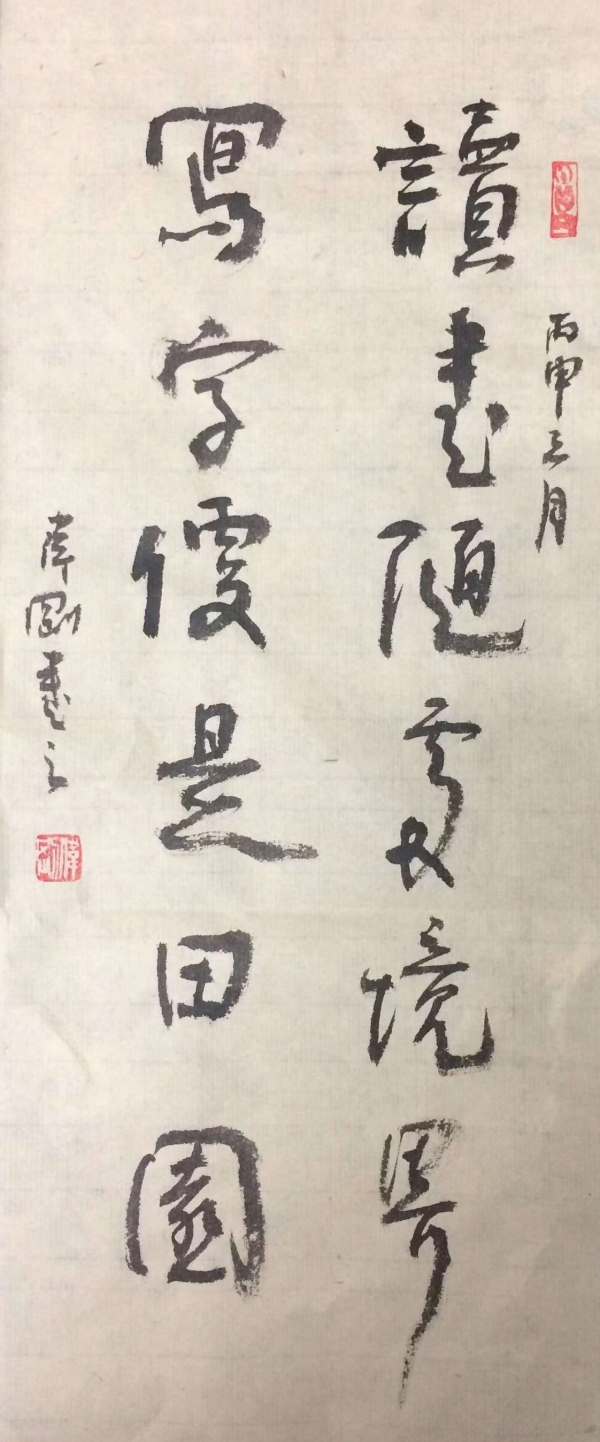 丙申三月
讀書隨處境界
寫字便是田園
剛書之